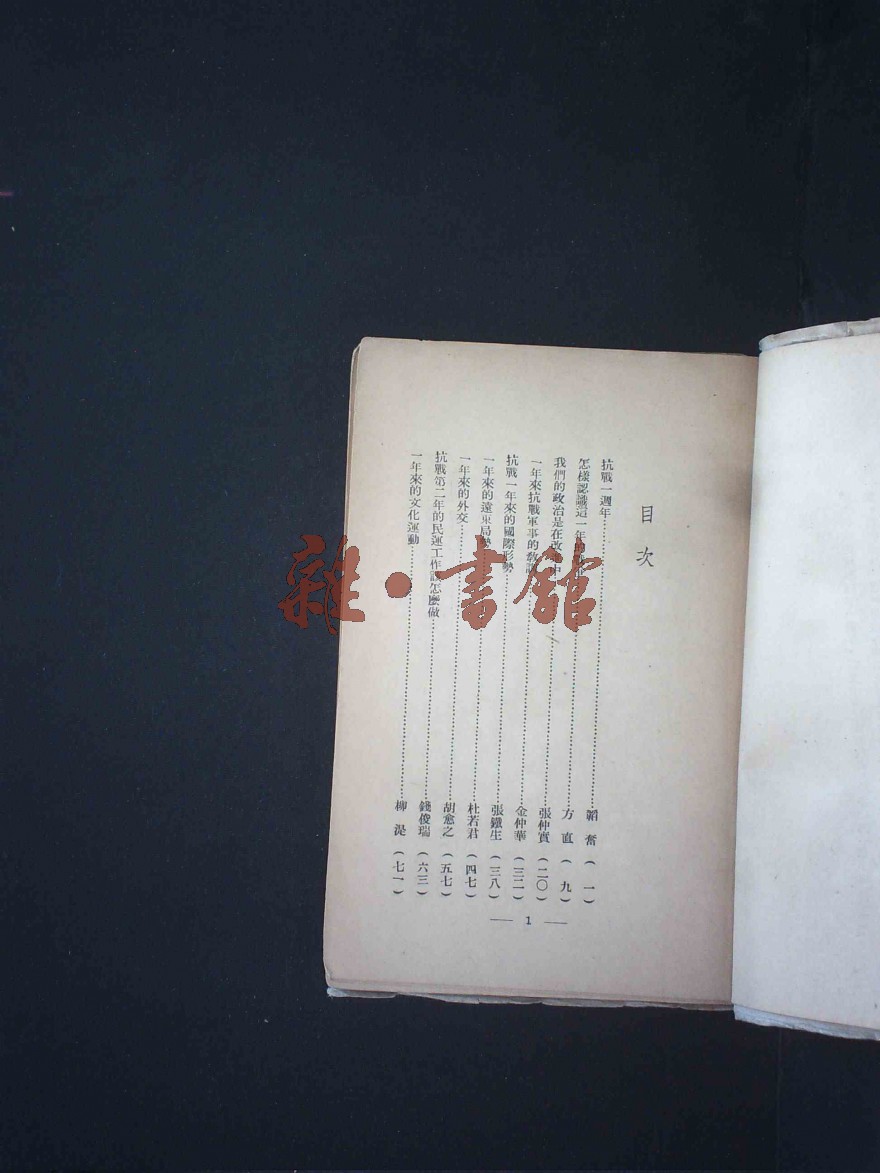 目次
抗戰一週年……韜奮（一）
怎樣認識這一年……方直（九）
我們的政治是在改進中……張仲實（二〇）
一年來抗戰軍事的教訓……金仲華（三二）
抗戰一年來的國際形勢……張鐵生（三八）
一年來的遠東局勢……杜若君（四七）
一年來的外交……胡愈之（五七）
抗戰第二年的民運工作該怎麼做……錢俊瑞（六三）
一年來的文化運動……柳湜（七一）
— 1 —
雜·書館